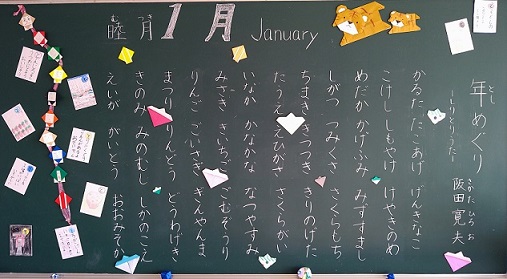 睦月 1月 January
年めぐり
とし
―しりとりうた―
阪田寛夫
さかたひろお
かるた たこあげ げんきなこ
こけし しもやけ けやきのめ
めだか かげふみ みずすまし
しがつ つみくさ さくらもち
ちまき きつつき きりのげた
たうえ えひがさ さくらがい
いなか かなかな なつやすみ
みさき きいちご ごむぞうり
りんご ごいさぎ ぎんやんま
まつり りんどう どうわげき
きのみ みのむし しかのこえ
えいが がいとう おおみそか